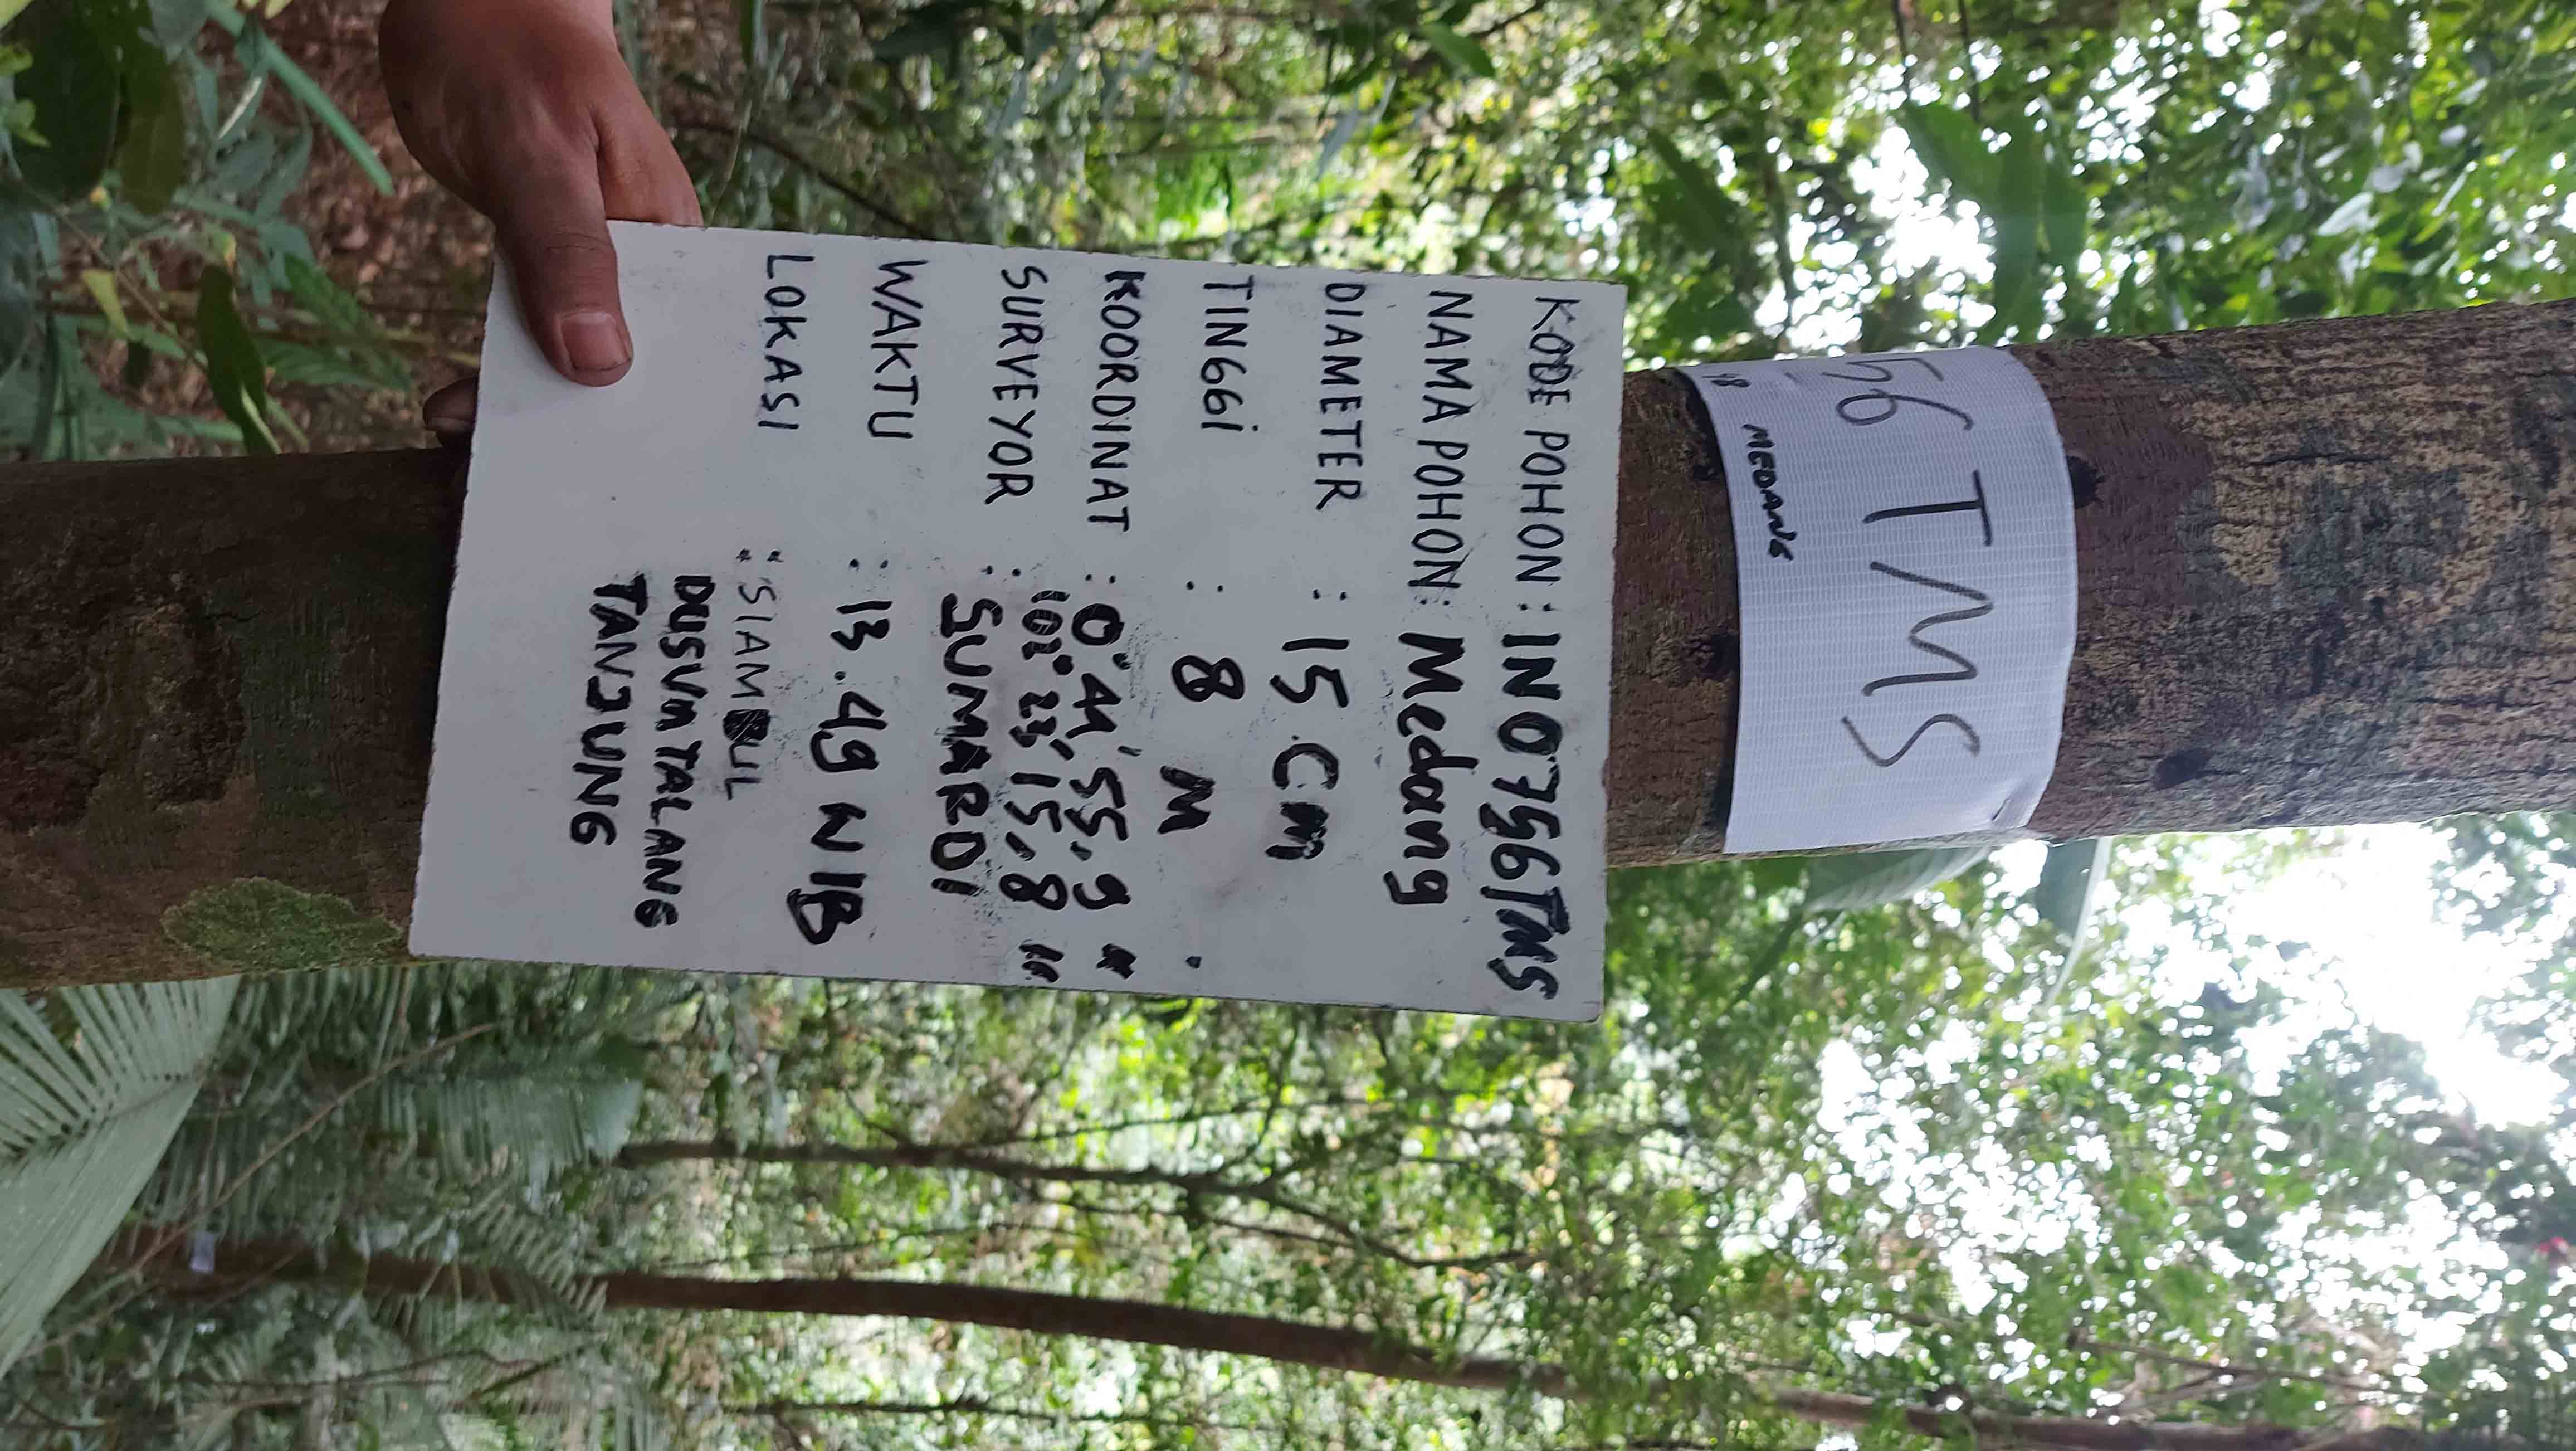 56 TMS
48 MEDANG
KODE POHON : IN 0756TMS
NAMA POHON : Medang
DIAMETER : 15 Cm
TINGGi : 8 M
KOORDINAT : 0° 44' 55,9 "
: 102° 23' 15,8 "
SURVEYOR : SUMARDI
WAKTU : 13.49 WIB
LOKASI : SIAMBUL
DUSUN TALANG
TANJUNG